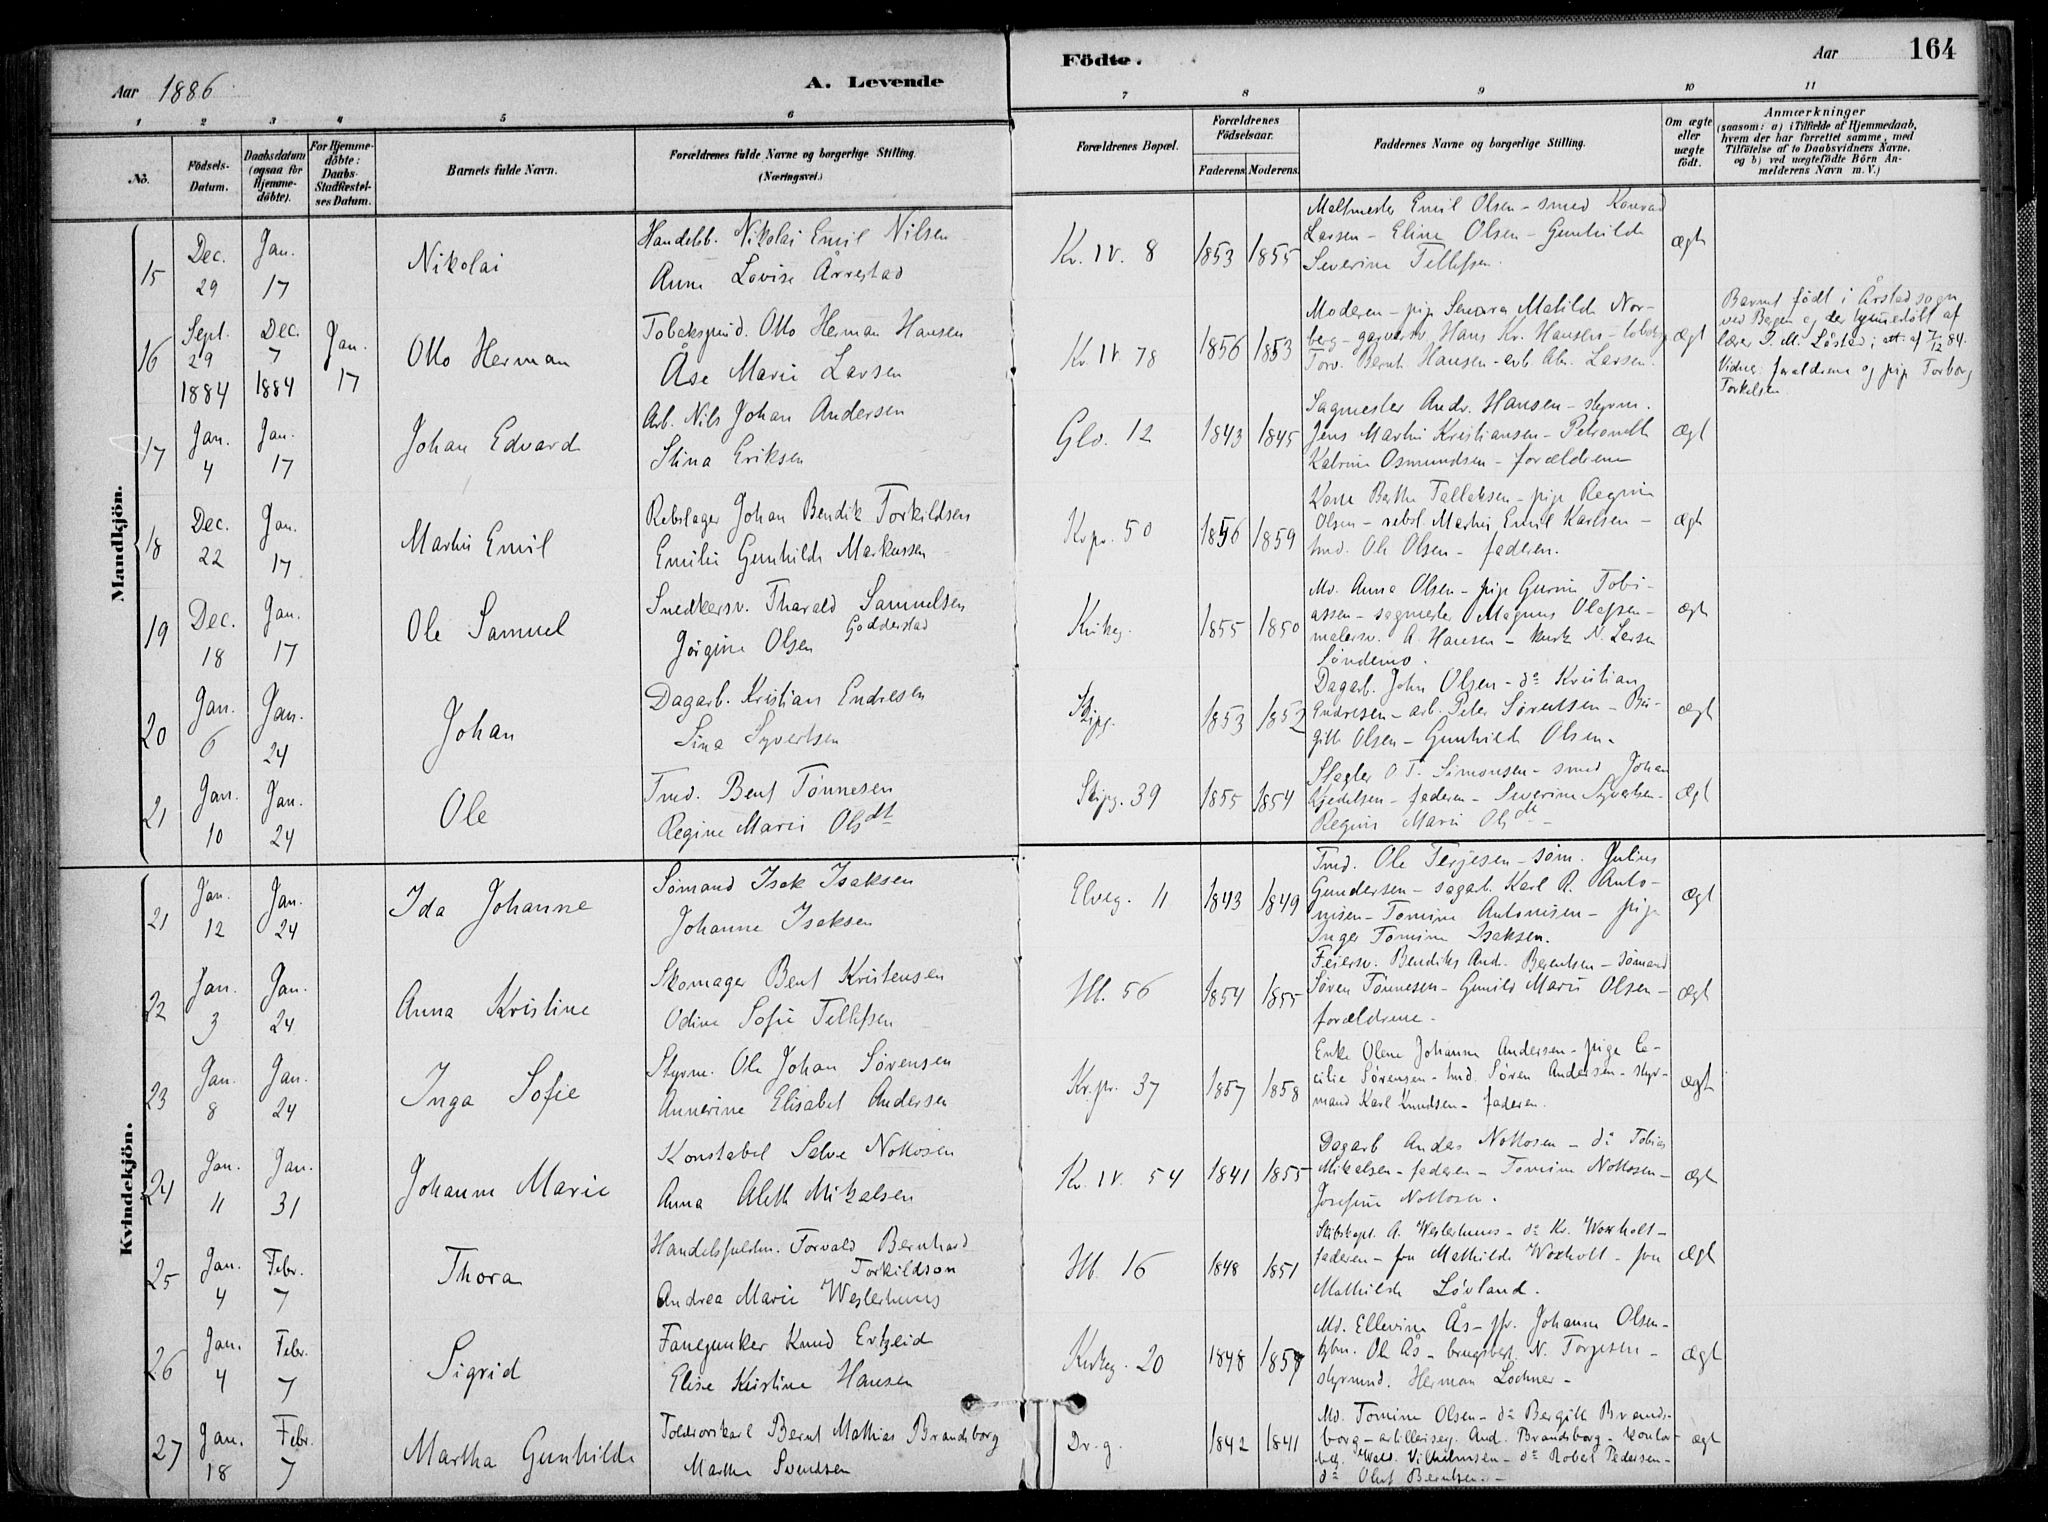 Aar 1886.
A. Levende
Födte.
Aar
164
1 2 3 4 5 6 7 8 9 10 11
No.
Födsels-Datum.
Daabsdatum (ogsaa for Hjemmedöbte).
For Hjemmedöbte: Daabs-Stadfæstelses Datum.
Barnets fulde Navn.
Forældrenes fulde Navne og borgerlige Stilling. (Næringsvei.)
Forældrenes Bopæl.
Forældrenes Födselsaar.
Faderens. Moderens.
Faddernes Navne og borgerlige Stilling.
Om ægte eller uægte födt.
Anmærkninger
(saasom: a) i Tilfælde af Hjemmedaab, hvem der har forrettet samme, med Tilföielse af to Daabsvidners Navne, og b) ved uægtefödte Börn Anmelderens Navn m. V.)
Mandkjön.
15 Dec. 29 Jan. 17 Nikolai
Handelsb. Nikolai Emil Nilsen
Anne Lovise Årrestad
Kr. IV. 8 1853 1855
Maltmester Emil Olsen - smed Konrad
Larsen - Eline Olsen - Gunhilde
Severine Tellefsen.
ægt
16 Sept. 29 1884 Dec. 7 1884 Jan. 17 Otto Herman
Tobakspind. Otto Herman Hansen
Åse Marie Larsen
Kr. IV. 78 1856 1853
Moderen - pige Severa Matilde Nor-
berg - garversv. Hans Kr. Hansen -
Torv. Bernt Hansen - arb. Larsen.
ægt
Barnet født i Årstad sogn
ved Bergen og der hjemmedøbt af
lærer I. M. Løstad, att. af 7/12 84.
Vidner: forældrene og pige Torborg
Torkelsen.
17 Jan. 4 Jan. 17 Johan Edvard
Arb. Nils Johan Andersen
Stina Eriksen
Glv. 12 1843 1845
Sagmester Andr. Hansen - styrm.
Jens Martin Kristiansen - Petronelle
Katrine Osmundsen - forældrene
ægt
18 Dec. 22 Jan. 17 Martin Emil
Rebslager Johan Bendik Torkildsen
Emilie Gunhilde Markussen
Kr.pr. 50 1856 1859
Kone Berthe Tallaksen - pige Regine
Olsen - rebsl. Martin Emil Karlsen -
tmd. Ole Olsen - faderen.
ægt
19 Dec. 18 Jan. 17 Ole Samuel
Snedkersv. Tharald Samuelsen
Godderstad
Jørgine Olsen
Kirkeg. 1855 1850
Md. Anna Olsen - pige Gurine Tobi-
assen - sagmester Magnus Olafsen -
malersv. A. Hansen - kusk N. Larsen
Søndemo.
ægt
20 Jan. 6 Jan. 24 Johan
Dagarb. Kristian Endresen
Sina Syvertsen
Skipg. 1853 1852
Dagarb. John Olsen - do Kristian
Endresen - arb. Peter Sørensen - Bir-
gitte Olsen - Gunhilde Olsen.
ægt
21 Jan. 10 Jan. 24 Ole
Tmd. Bent Tønnesen
Regine Marie Olsdt
Skipg. 39 1855 1854
Slagter O. T. Simonsen - smed Johan
Kjedelsen - faderen - Severine Syvertsen -
Regine Marie Olsdt -
ægt
Kvindekjön.
21 Jan. 12 Jan. 24 Ida Johanne
Sømand Isak Isaksen
Johanne Isaksen
Elveg. 11 1843 1849
Tmd. Ole Terjesen - søm. Julius
Gundersen - sagarb. Karl R. Anto-
nisen - Tomine Antonisen - pige
Inger Tomine Isaksen.
ægt
22 Jan. 3 Jan. 24 Anna Kristine
Skomager Bent Kristensen
Odine Sofie Tellefsen
Hb. 56 1854 1855
Feiersv. Bendiks And. Berentsen - sømand
Søren Tønnesen - Gunild Marie Olsen -
forældrene -
ægt
23 Jan. 8 Jan. 24 Inga Sofie
Styrm. Ole Johan Sørensen
Annerine Elisabet Andersen
Kr.pr. 37 1857 1858
Enke Olene Johanne Andersen - pige Ce-
cilie Sørensen - tmd. Søren Andersen - styr-
mand Karl Knudsen - faderen.
ægt
24 Jan. 11 Jan. 31 Johanne Marie
Konstabel Salve Nottosen
Anna Aleth Mikalsen
Kr. IV. 54 1841 1855
Dagarb Andas Nottosen - do Tobias
Mikalsen - faderen - Tomine Nottosen -
Josefine Nottosen.
ægt
25 Jan. 4 Febr. 7 Thora
Handelsfuldm. Torvald Bernhard
Torkildson
Andrea Marie Westerhuus
Hb. 16 1848 1851
Skibskapt. A. Westerhuus - do Kr. Woxholt -
faderen - fru Mathilde Woxholt - fru
Mathilde Løvland.
ægt
26 Jan. 4 Febr. 7 Sigrid
Fanejunker Knud Ertzeid
Elise Kirstine Hansen
Kirkeg. 20 1848
Md. Ellevine Ås - jfr. Johanne Olsen -
Ole Ås - brugsbest. N. Torjesen -
styrmd. Herman Lochner -
ægt
27 Jan. 18 Febr. 7 Martha Gunhilde
Toldrorskarl Bernt Mathias Brandsborg
Marthe Svendsen
Dr.g. 1842 1841
Md. Tomine Olsen - do Bergith Brands-
borg - artillerserg. And. Brandsborg - kontor-
bet. Wald. Vilhelmsen - do Robert Pedersen -
do Oluf Berntsen -
ægt